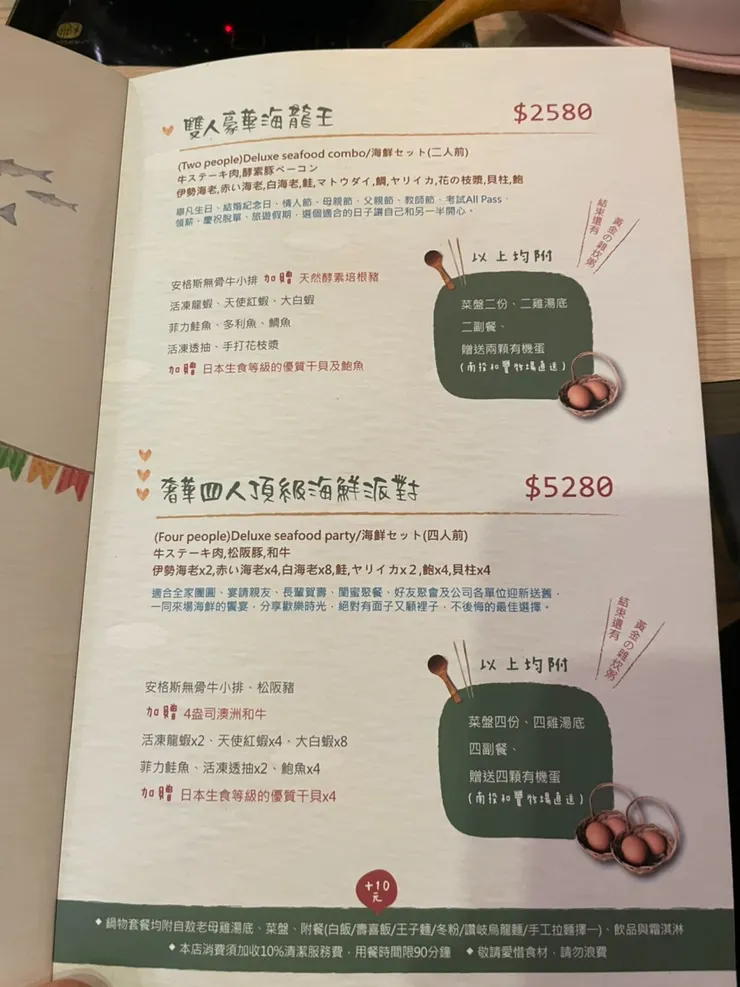 雙人豪華海龍王 $2580
(Two people)Deluxe seafood combo/海鮮セット(二人前)
牛ステーキ肉,酵素豚ベーコン
伊勢海老,赤い海老,白海老,鮭,マトウダイ,鯛,ヤリイカ,花の枝漿,貝柱,鮑
舉凡生日、結婚紀念日、情人節、母親節、父親節、教師節、考試All Pass、
領薪、慶祝脫單、旅遊假期,選個適合的日子讓自己和另一半開心。
結束還有
黃金の雜炊粥
安格斯無骨牛小排 加贈 天然酵素培根豬
活凍龍蝦、天使紅蝦、大白蝦
菲力鮭魚、多利魚、鯛魚
活凍透抽、手打花枝漿
加贈 日本生食等級的優質干貝及鮑魚
以上均附
菜盤二份、二雞湯底
二副餐、
贈送兩顆有機蛋
(南投和豐牧場直送)
奢華四人頂級海鮮派對 $5280
(Four people)Deluxe seafood party/海鮮セット(四人前)
牛ステーキ肉,松阪豚,和牛
伊勢海老x2,赤い海老x4,白海老x8,鮭,ヤリイカx2,鮑x4,貝柱x4
適合全家團圓、宴請親友、長輩賀壽、閨蜜聚餐、好友聚會及公司各單位迎新送舊,
一同來場海鮮的饗宴,分享歡樂時光,絕對有面子又顧裡子,不後悔的最佳選擇。
結束還有
黃金の雜炊粥
安格斯無骨牛小排、松阪豬
加贈 4盎司澳洲和牛
活凍龍蝦x2、天使紅蝦x4、大白蝦x8
菲力鮭魚、活凍透抽x2、鮑魚x4
加贈 日本生食等級的優質干貝x4
以上均附
菜盤四份、四雞湯底
四副餐、
贈送四顆有機蛋
(南投和豐牧場直送)
+10
元
◆ 鍋物套餐均附自敖老母雞湯底、菜盤、附餐(白飯/壽喜飯/王子麵/冬粉/讚岐烏龍麵/手工拉麵擇一)、飲品與霜淇淋
◆ 本店消費須加收10%清潔服務費,用餐時間限90分鐘 ◆ 敬請愛惜食材,請勿浪費